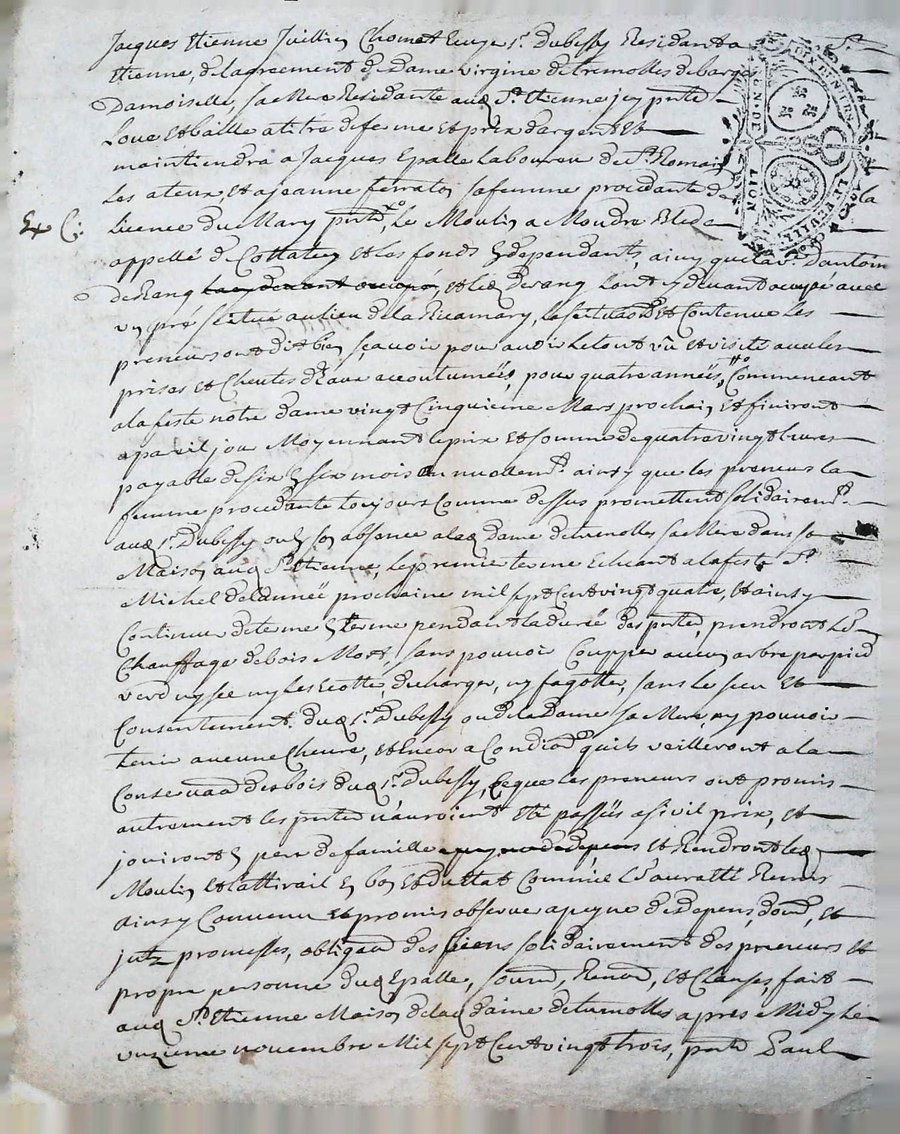 Jacques Etienne Juillien Chomat Ecuyer Sr. Dubessy Residant a St.
Etienne, de lagreement de Dame virgine de tremolles de barge
Damoiselle, sa Mere Residante aud St. Etienne icy pnte
Loue et baille a titre de ferme et prix dargent et
maintiendra a Jacques Epalle Laboureur de St. Romain
Les ateux, et a jeanne ferraton sa femme procedante de la
Ex C:
licence du Mary pnte, Le Moulin a Moudre Bled
appellé de Cottatey et les fonds en dependants, ainsy que
de Rang et led Derang Lont cy devant occupé avec
un pré scitué au lieu de la Ricamary, la scituaon et Contenue les
preneurs ont dit bien sçavoir pour avoir le tout vû et visité avec les
prises et Cheutes d'Eaux accoutumeës, pour quatre anneës, Commencant
a la feste notre dame vingt Cinquieme Mars prochain et finiront
a pareil jour Moyennant le prix et somme de quatre vingt livres
payable de six en six mois ainsy que les preneurs la
femme procedante toujours Comme dessus promettent solidairemt.
aud Sr. Dubessy ou en son absence a lad dame de tremolles sa Mere dans sa
Maison aud St. Etienne, le premier terme Echeant a la feste St.
Michel de lanneë prochaine mil sept Cent vingt quatre, et ainsy
Continuer de terme en terme pendant la dureë des pntes, prendront Le
Chauffage de bois Mort, sans pouvoir Coupper aucun arbre par pied
verd ny sec ny les ecotter, decharger, ny fagotter, sans le sceu et
Consentement dud Sr. Dubessy ou de la Dame sa Mere, ny pouvoir
tenir aucune Chevre, et Encor a Condiaon quils veilleront a la
Conservaon des bois dud Sr. Dubessy, Ce que les preneurs ont promis
autrement les pntes n'auroient Eté passeës a si vil prix, et
jouiront en pere de famille et Rendront led
Moulin et lattirail en bon et du Etat Comme il Leur aura eté Remis
ainsy Convenu et promis observer a peyne de depens, dom, et
jntz promesses, obligaon des biens solidairement des preneurs et
propre personne dud Epalle, soumd, Renond, et Clauses, fait
aud St. Etienne Maison de lad dame de tremolles apres Midy Le
unzieme novembre Mil sept Cent vingt trois, pnts Paul
GEN. DE
LION
DIX DENIERS
LA FEUILLE